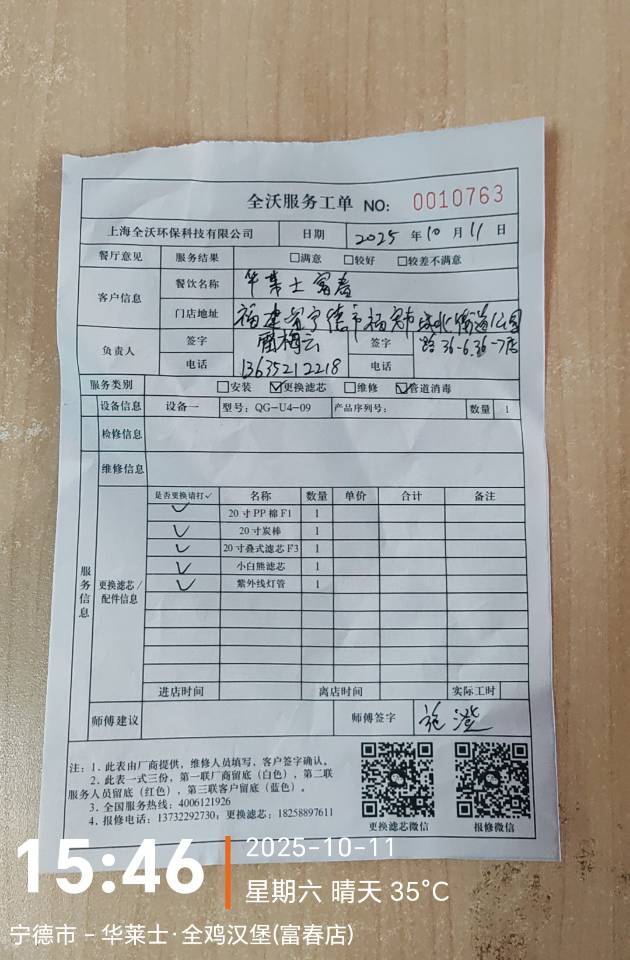 全沃服务工单 NO: 0010763
上海全沃环保科技有限公司 日期 2025 年 10 月 11 日
餐厅意见 服务结果 □满意 □较好 □较差不满意
客户信息 餐饮名称 华莱士富春
门店地址 福建省宁德市福安市城北街道公园
路36-6,36-7店
负责人 签字 雷梅云 签字
电话 13635212218 电话
服务类别 □安装 ☑更换滤芯 □维修 ☑管道消毒
设备信息 设备一 型号: QG-U4-09 产品序列号: 数量 1
检修信息
维修信息
服务信息
更换滤芯/配件信息
是否更换请打✓ 名称 数量 单价 合计 备注
✓ 20寸PP棉F1 1
✓ 20寸炭棒 1
✓ 20寸叠式滤芯F3 1
✓ 小白熊滤芯 1
✓ 紫外线灯管 1
进店时间 离店时间 实际工时
师傅建议 师傅签字 施澄
注: 1. 此表由厂商提供, 维修人员填写、客户签字确认。
2. 此表一式三份, 第一联厂商留底(白色), 第二联
服务人员留底(红色), 第三联客户留底(蓝色)。
3. 全国服务热线: 4006121926
4. 报修电话: 13732292730; 更换滤芯: 18258897611
更换滤芯微信 报修微信
15:46
2025-10-11
星期六 晴天 35°C
宁德市 - 华莱士·全鸡汉堡(富春店)